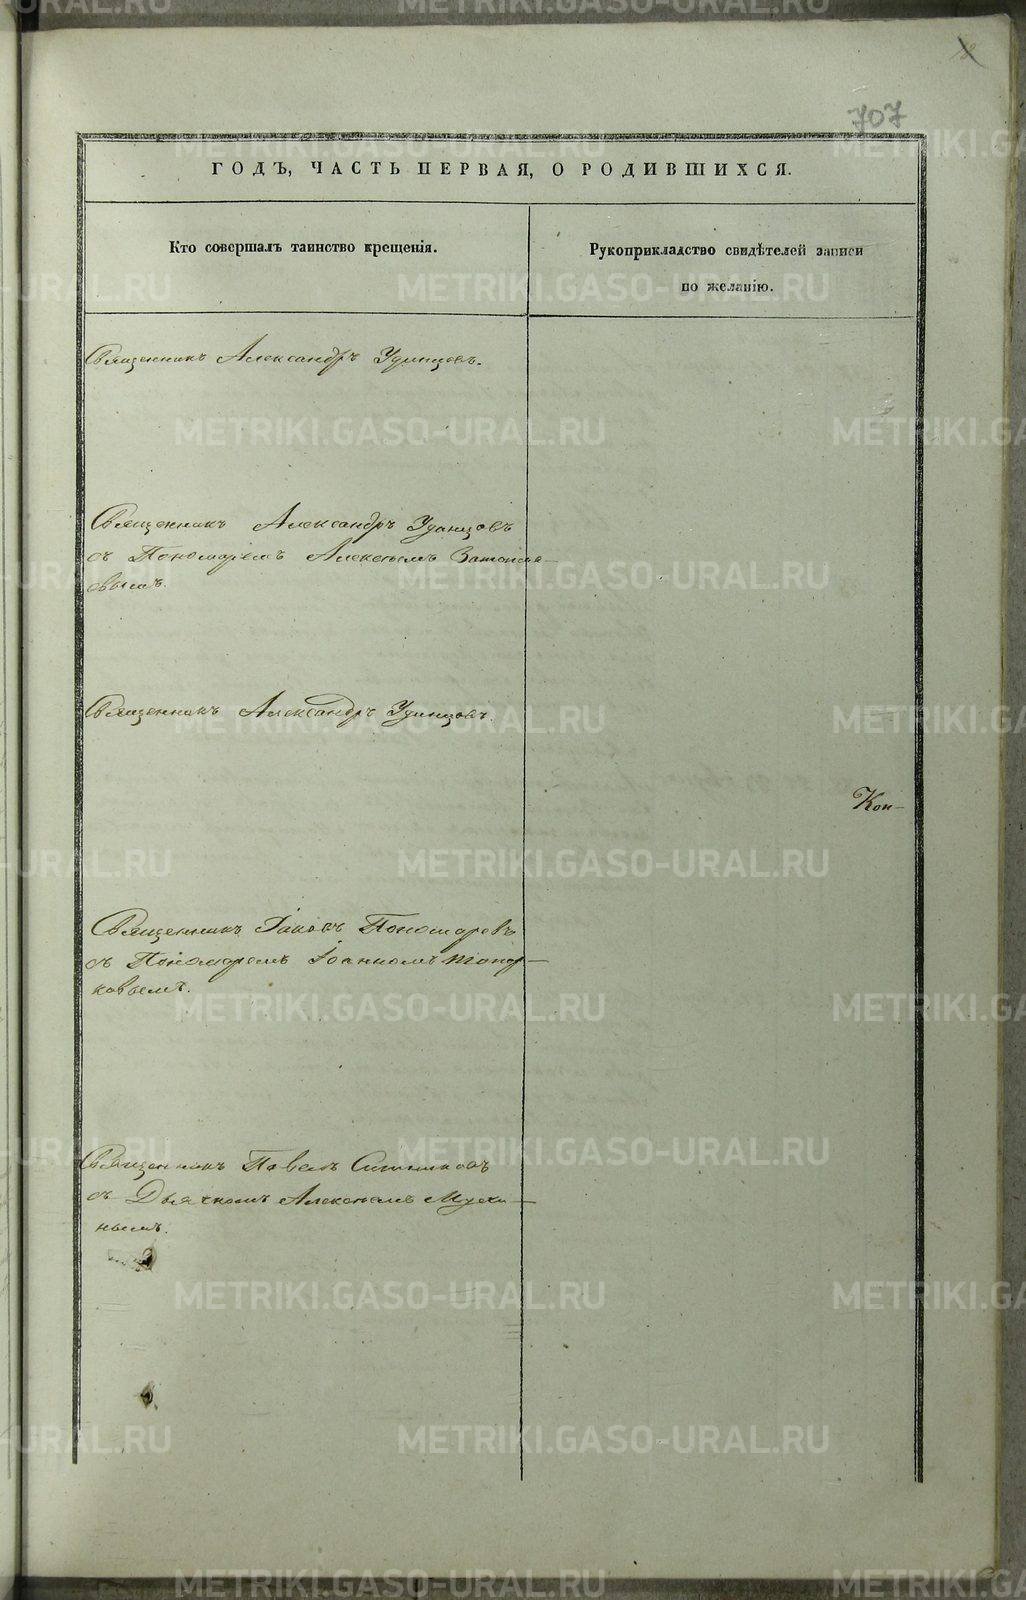 18
707
ГОДЪ, ЧАСТЬ ПЕРВАЯ, О РОДИВШИХСЯ.
Кто совершалъ таинство крещенія.
Рукоприкладство свидѣтелей записи
по желанію.
Священникъ Александръ Удинцовъ.
Священникъ Александръ Удинцовъ
съ Пономаремъ Алексѣемъ
Священникъ Александръ Удинцовъ.
Кон-
Священникъ Іаковъ Пономаревъ
съ Пономаремъ Іоанномъ Топор-
ковымъ.
Священникъ Павелъ Ситниковъ
съ Дьячкомъ Алексѣемъ Мухи-
нымъ.
METRIKI.GASO-URAL.RU